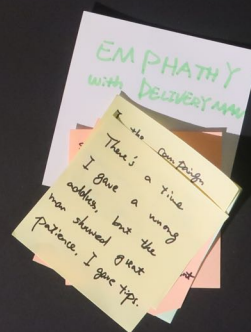 EMPHATHY
with DELIVERY MAN
the campaign
There's a time
I gave a wrong
address, but the
man showed great
patience, I gave tips.